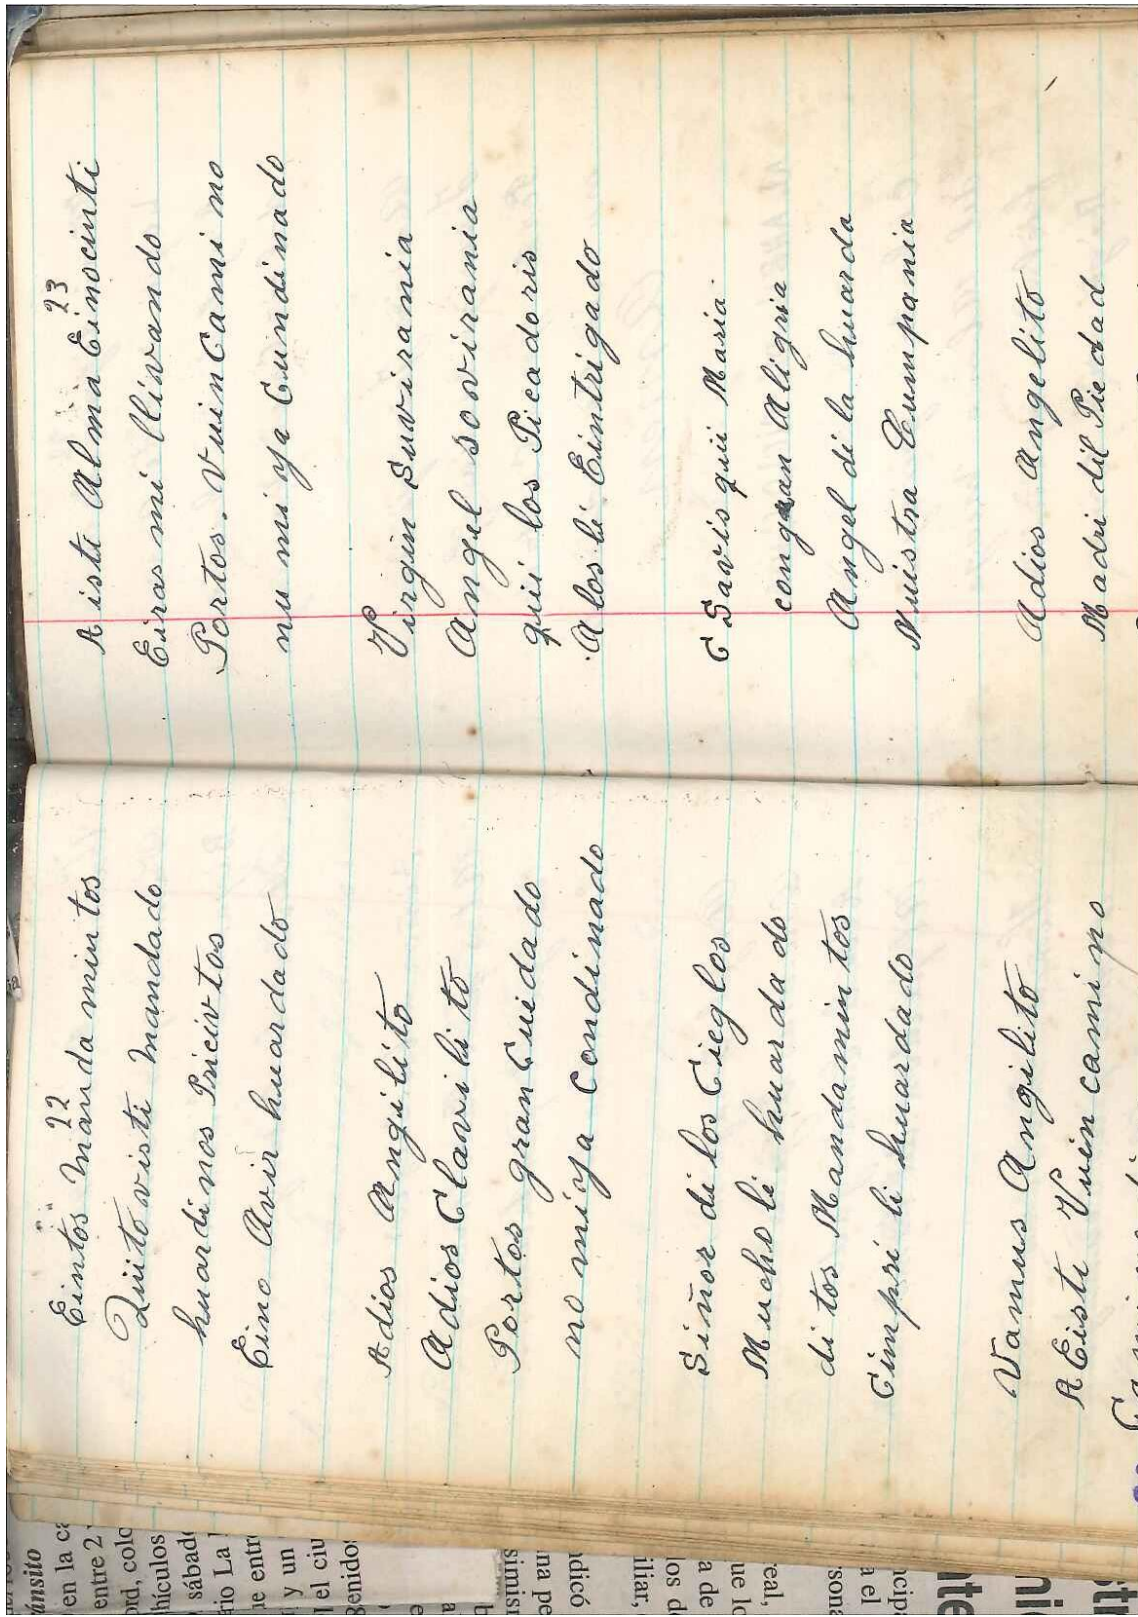 22
Eintos Mandamintos
Quitovisti Mandado
huardinos Pricivtos
Eino Avir huardado
Adios Angilito
Adios Clavilito
Portos gran Cuidado
no miya Condinado
Siñor di los Cieglos
Mucho li huardado
di tos Mandamintos
Cimpri li huardado
Vamus Angilito
A Eisti Vuin camino
23
A isti Alma Einocinti
Eiras mi llivando
Portos. Vuin Cami no
nu mi ya Cundinado
Virgin Suvirania
Angel sovirania
quii los Picadoris
A los li Eintrigado
C Savis quii Maria
congran Aligria
Angel di la huarda
Nuistra Cumpania
Adios Angelito
Madri dil Pie dad
ánsito
en la ca
entre 2
ord, colo
hículos
sábad
rio La
ue entr
y un
l el ciu
simis
na pe
ndicó
iliar,
los de
a de
ue lo
real,
sona
a el
ncipa